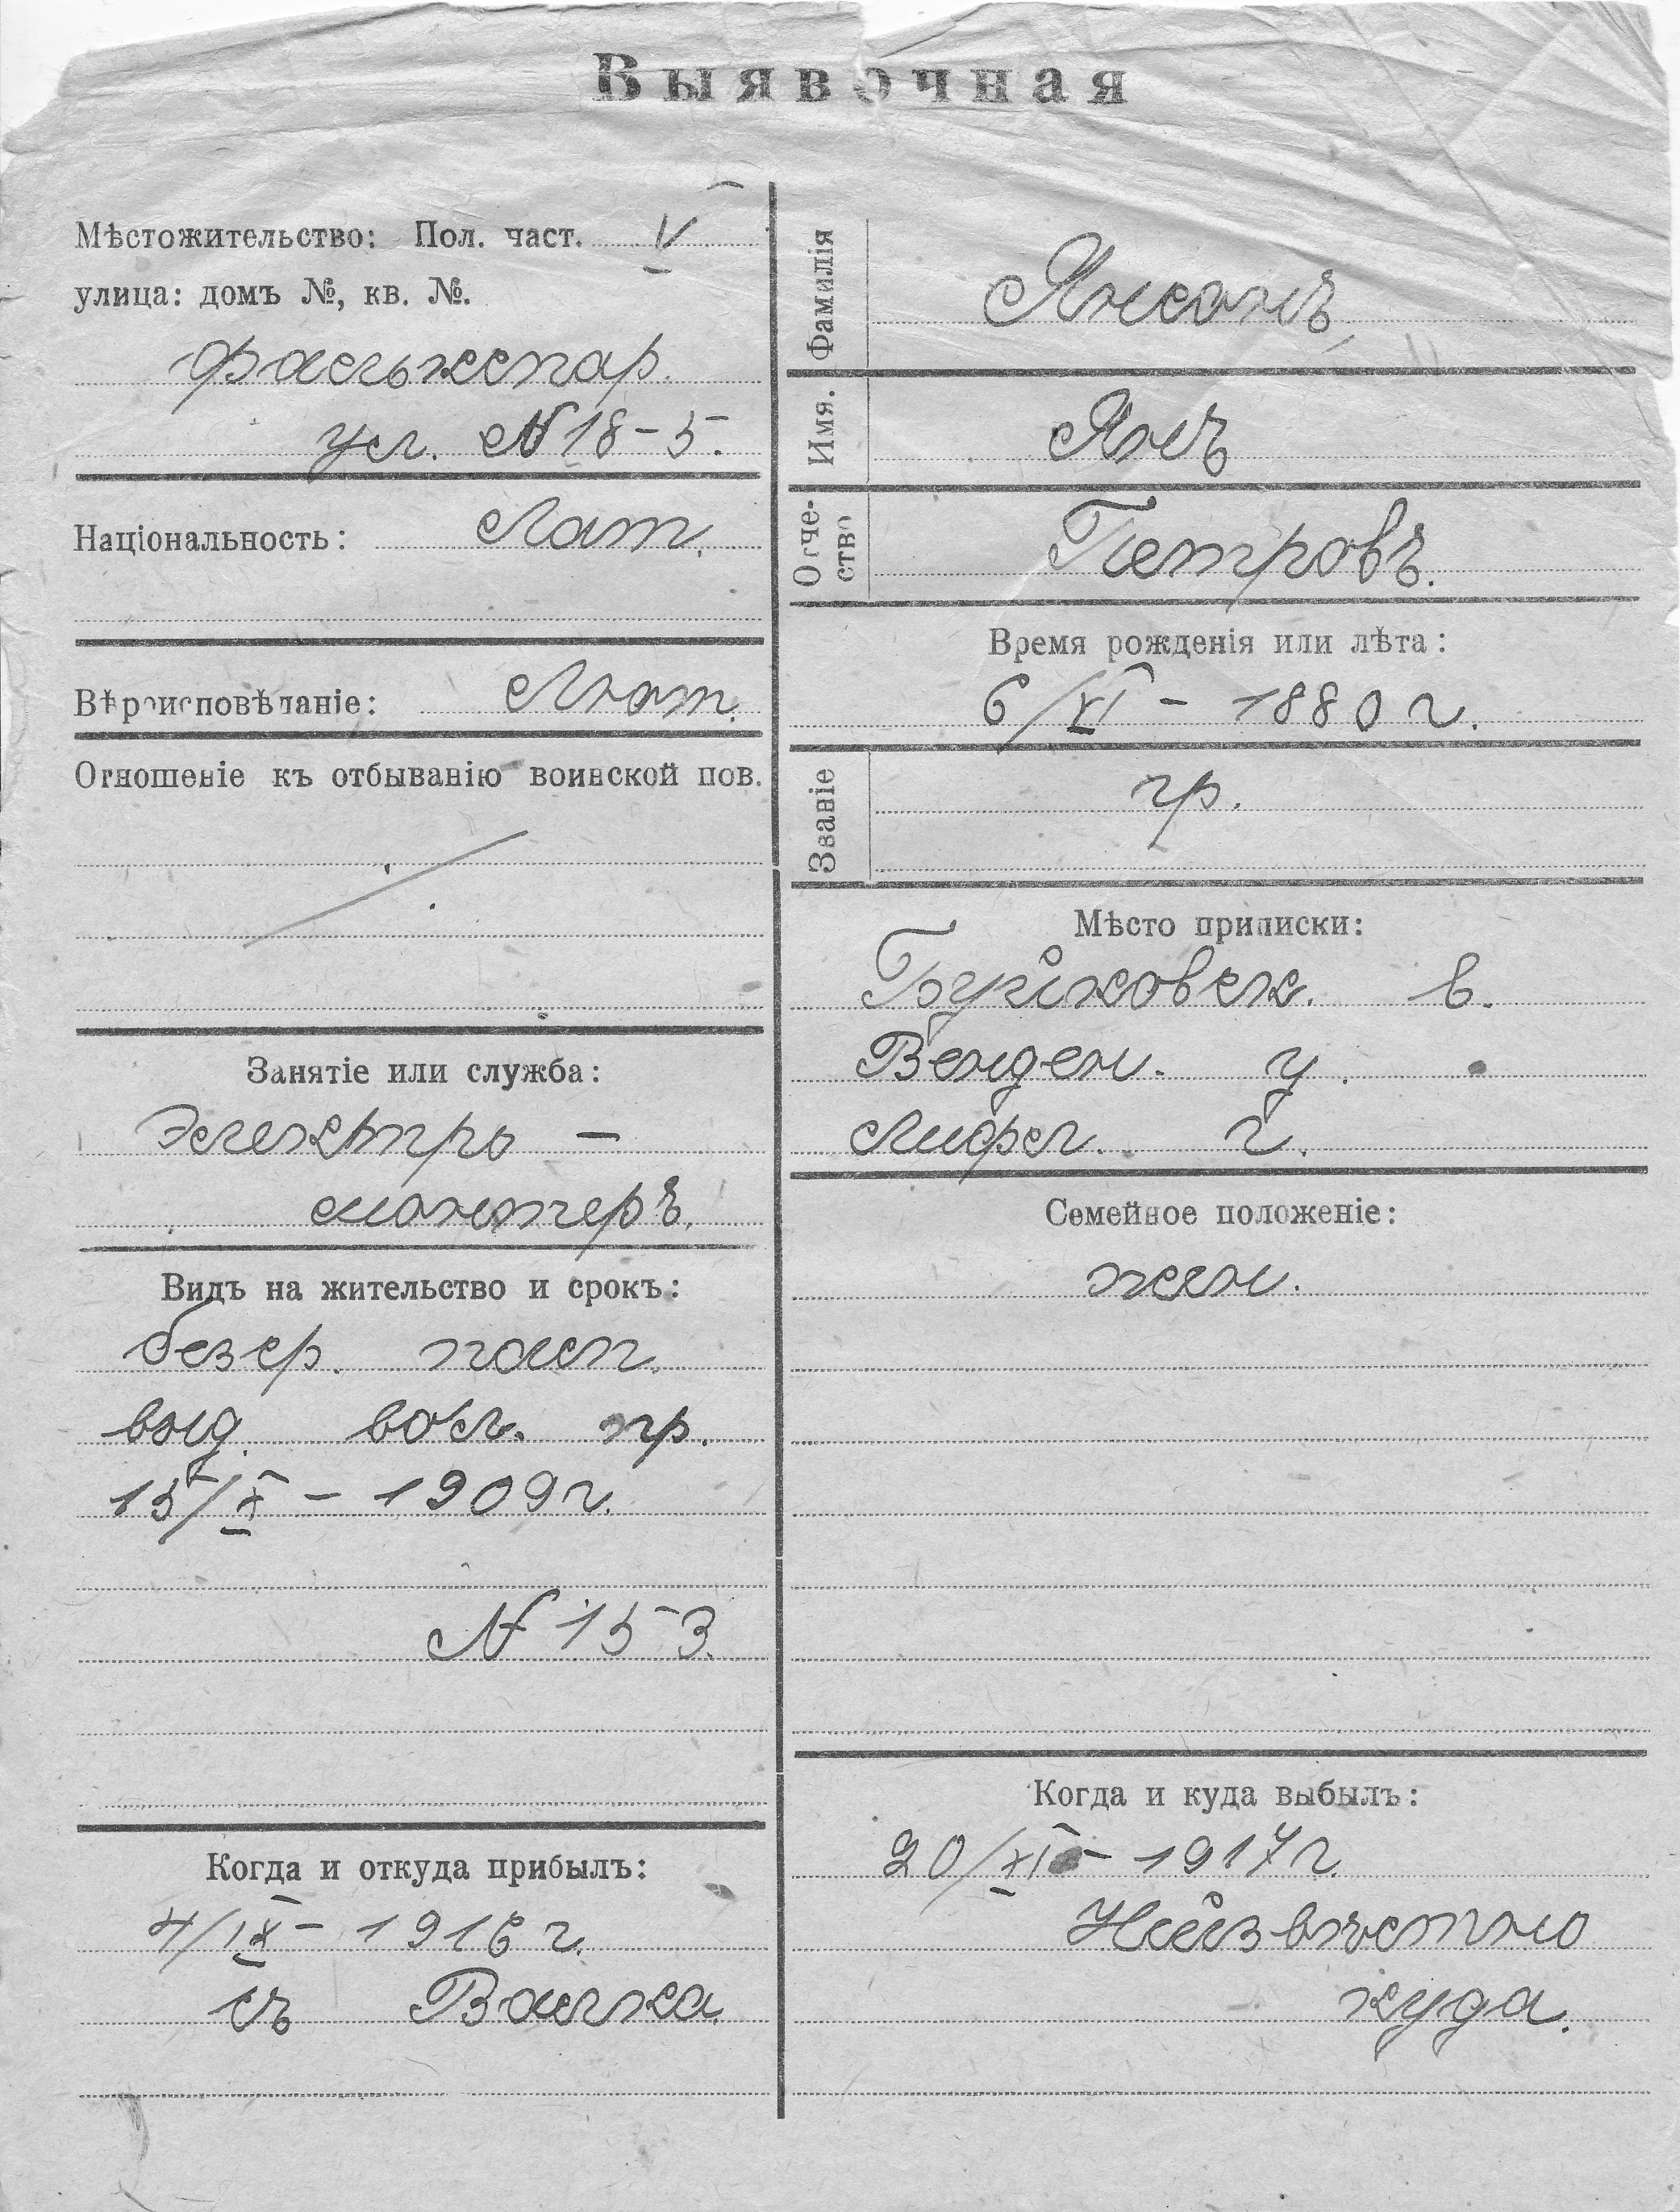 Выявочная
Мѣстожительство: Пол. част. V
улица: домъ №, кв. №.
Фальженпар.
ул. № 18-5.
Національность: Лат.
Вѣроисповѣданіе: Лют.
Отношеніе къ отбыванію воинской пов.
Занятіе или служба:
Электро-
монтеръ.
Видъ на жительство и срокъ:
безср. пасп.
выд. вол. пр.
15/X - 1909 г.
№ 153.
Когда и откуда прибылъ:
4/IX - 1916 г.
съ Валка
Фамилія Янсонъ
Имя. Янъ
Отчество Петровъ.
Время рожденія или лѣта:
6/XI - 1880 г.
Званіе гр.
Мѣсто приписки:
в.
Венден. у.
Лифл. г.
Семейное положеніе:
жен.
Когда и куда выбылъ:
20/XI - 1917 г.
Неизвѣстно
куда.